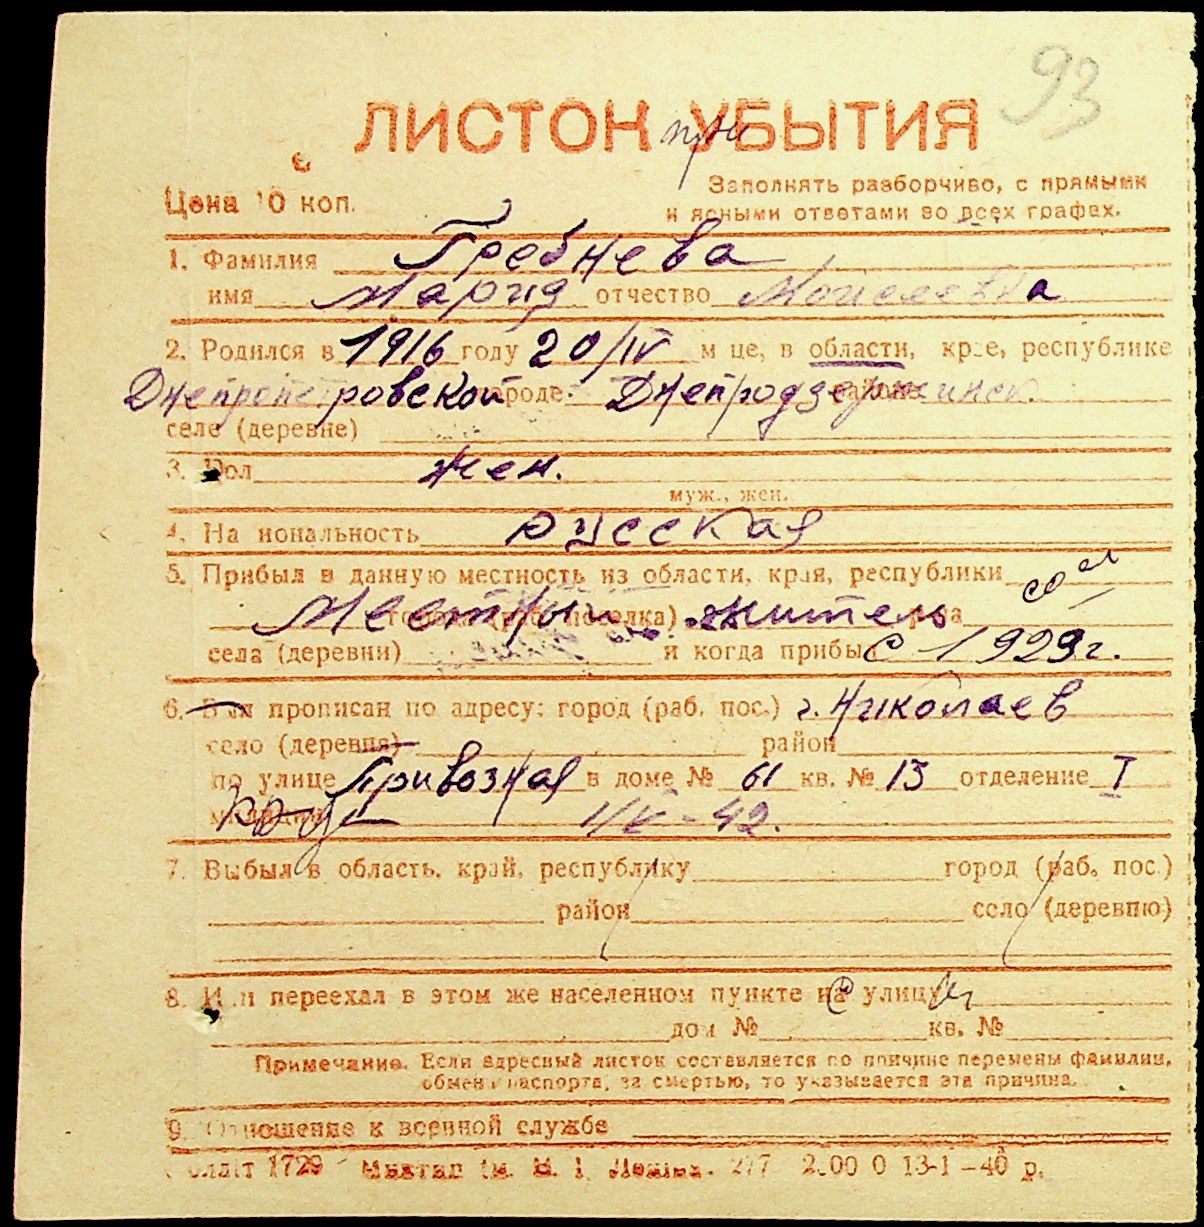 93
ЛИСТОН УБЫТИЯ
при
Цена 10 коп.
Заполнять разборчиво, с прямыми
и ясными ответами во всех графах.
1. Фамилия Гребнева
имя Мария отчество Моисеевна
2. Родился в 1916 году 20/IV м це, в области, крае, республике
Днепропетровской городе Днепродзержинск районе
селе (деревне)
3. Пол жен.
муж., жен.
4. На иональность русская
5. Прибыл в данную местность из области, края, республики
города (раб. поселка) Местный житель
села (деревни) и когда прибыл с 1929 г.
6. прописан по адресу: город (раб. пос.) г. Николаев
село (деревня) район
по улице Привозная в доме № 61 кв. № 13 отделение I
милиции
7. Выбыл в область, край, республику город (раб. пос.)
район село (деревню)
8. Или переехал в этом же населенном пункте на улицу
дом № кв. №
Примечание. Если адресный листок составляется по причине перемены фамилии,
обмен паспорта, за смертью, то указывается эта причина.
9. Отношение к военной службе
1729 277 13-1-40 р.